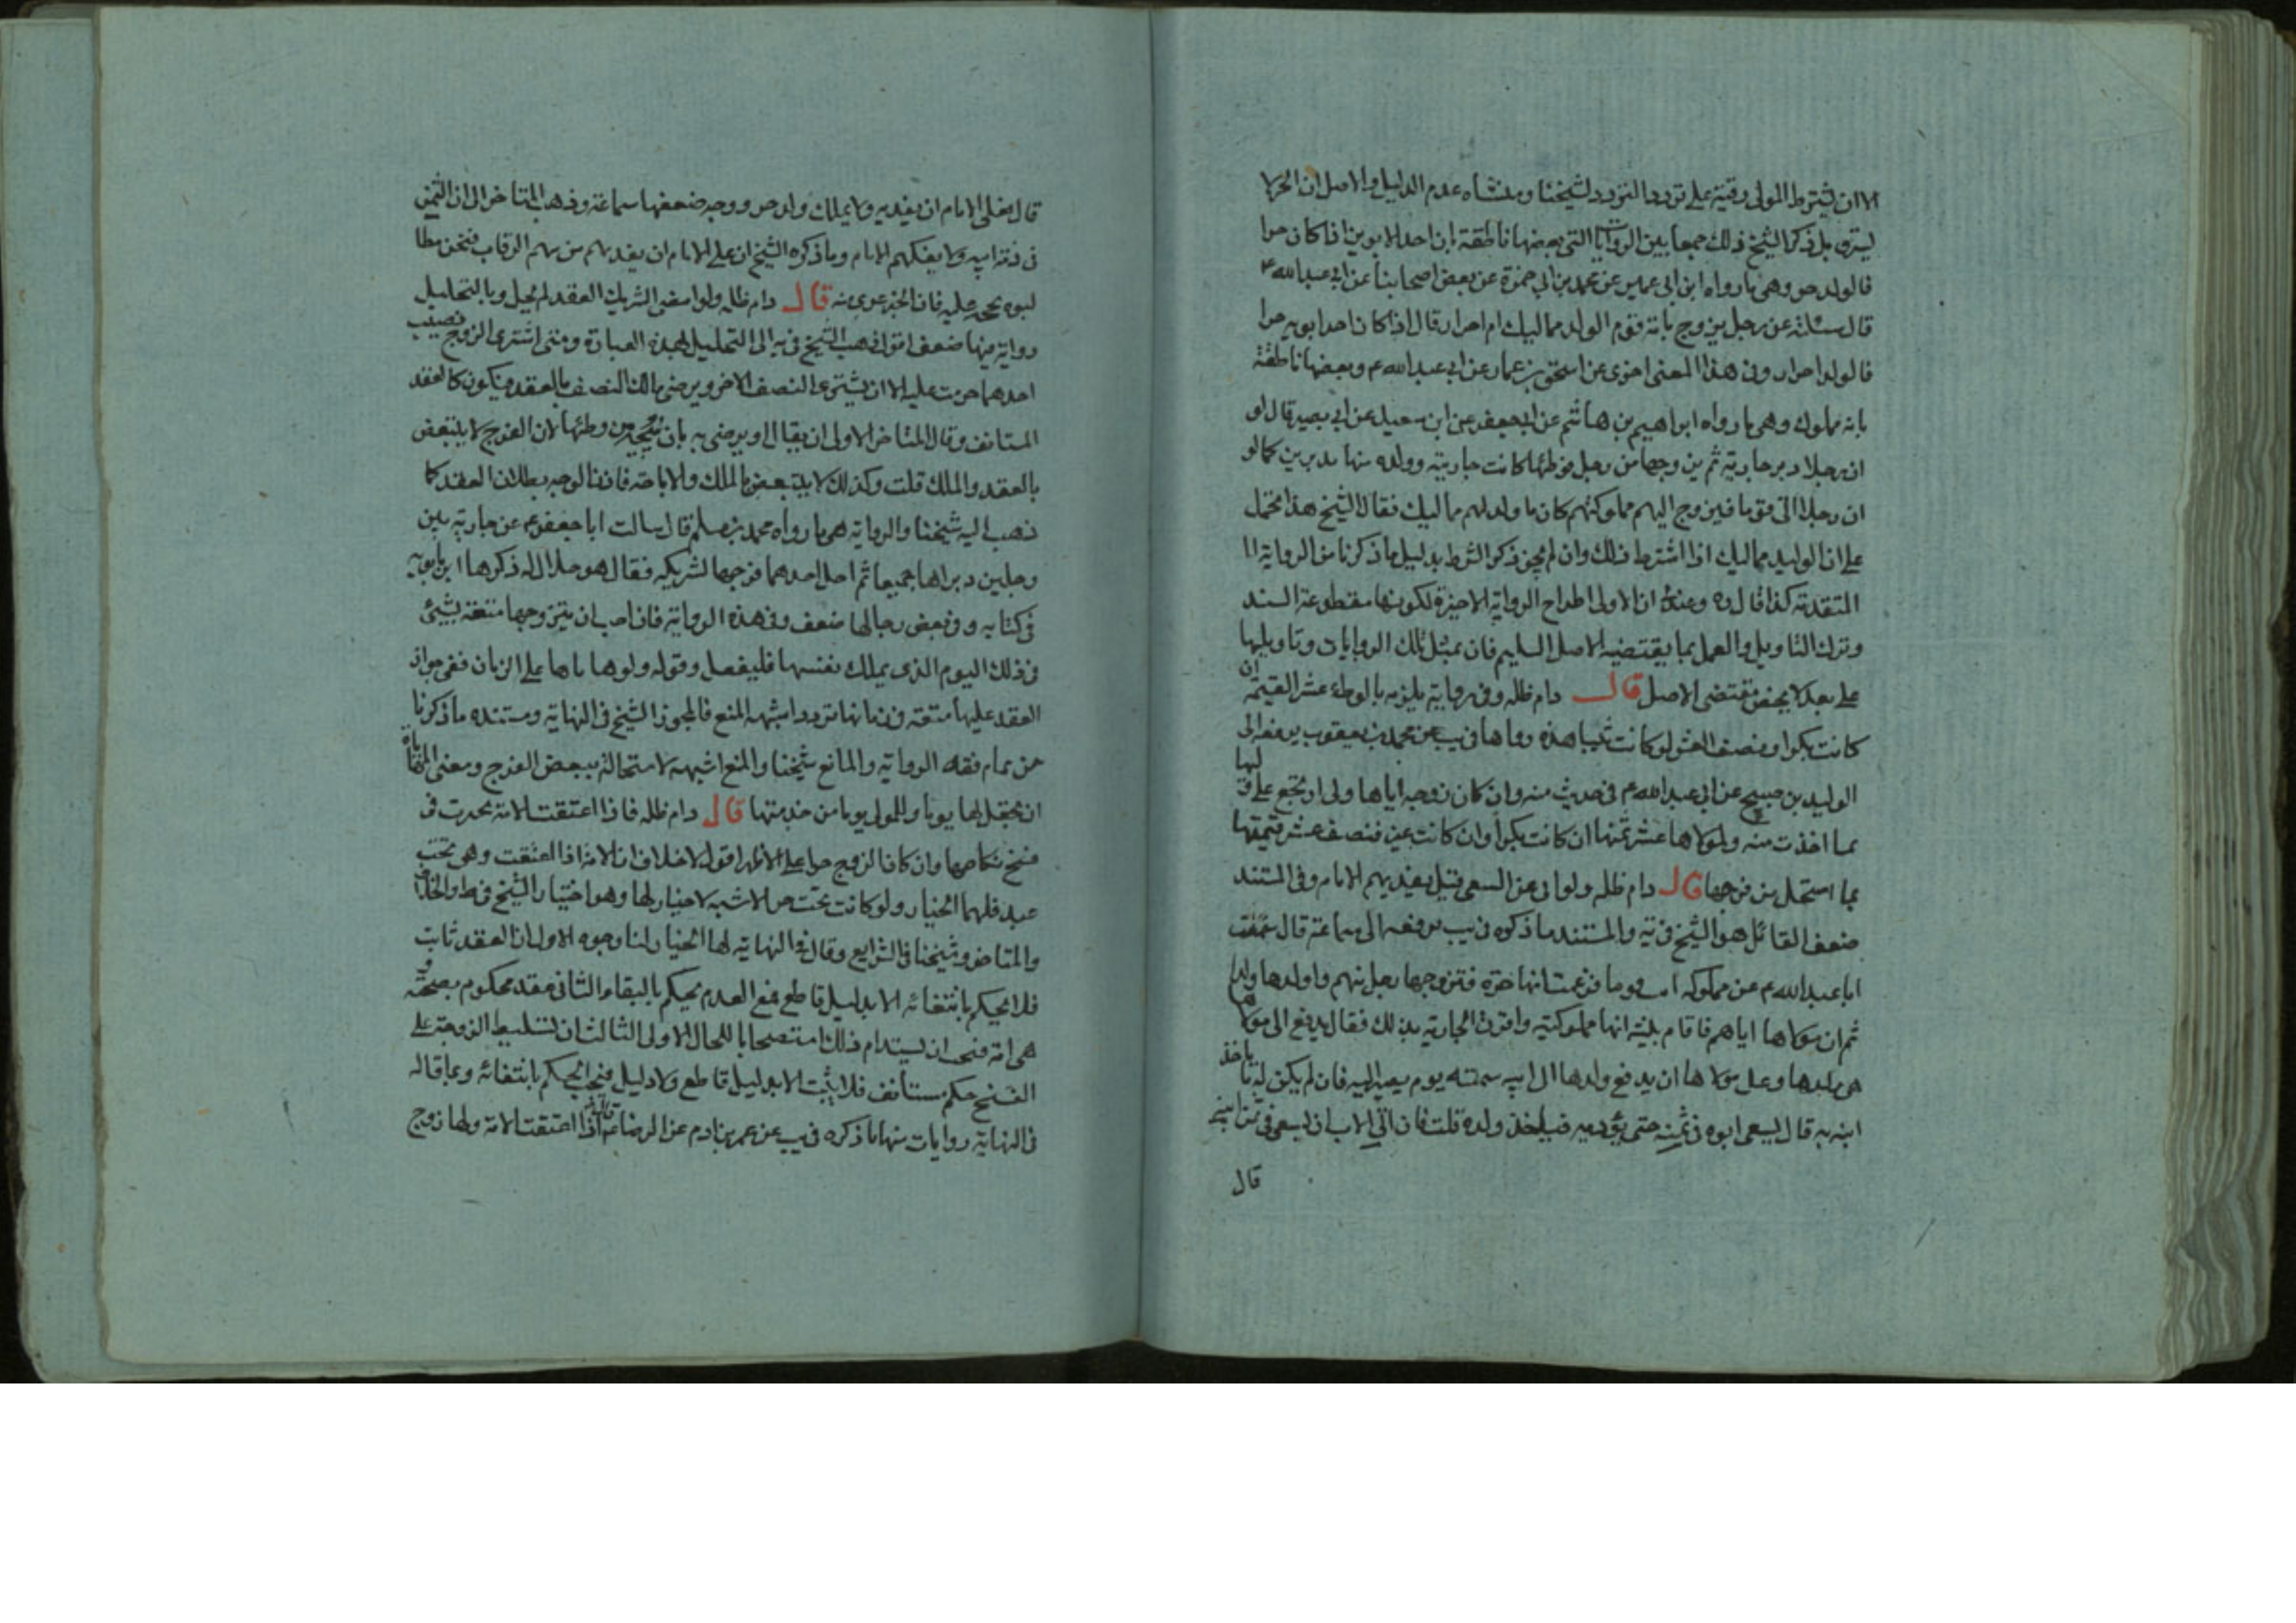 الا ان يشترط المولى رقيته على تردد التردد لشيخنا ومنشأه عدم الدليل والاصل ان الحر لا
يسترق بل ذكر الشيخ ذلك جمعا بين الروايات التى بعضها ناطقة ان احد الابوين اذا كان حرا
فالولد حر وهى ما رواه ابن ابى عمير عن محمد بن ابى حمزة عن بعض اصحابنا عن ابى عبدالله ع
قال سئلته عن رجل يزوج بامة قوم الولد مماليك ام احرار قال اذا كان احد ابويه حرا
فالولد احرار وفى هذا المعنى اخرى عن اسحق بن عمار عن ابى عبدالله ع وبعضها ناطقة
بانه مملوك وهى ما رواه ابراهيم بن هاشم عن ابى جعفر عن ابى سعيد عن ابى بصير قال لو
ان رجلا دبر جاريته ثم زوجها من رجل فوطئها كانت جاريته وولده منها مدبرين كما لو
ان رجلا اتى قوما فتزوج اليهم مملوكتهم كان ما ولد لهم مماليك فقال الشيخ هذا محمل
على ان الوليد مماليك اذا اشترط ذلك وان لم يجز ذكر الشرط بدليل ما ذكرنا من الرواية الا
المتقدمة كذا قال ره وعندى ان الاولى اطراح الرواية الاخيرة لكونها مقطوعة السند
وترك التاويل والعمل بما يقتضيه الاصل السليم فان بمثل تلك الروايات وتاويلها
على بعد لا يخص مقتضى الاصل قال دام ظله وفى رواية يلزمه بالوطئ عشر القيمة ان
كانت بكرا ونصف العشر لو كانت ثيبا هذه رواها فى يب عن محمد بن يعقوب يرفعه الى
الوليد بن صبيح عن ابى عبدالله ع فى حديث منه وان كان زوجه اياها ولى ارتجع على وليها
بما اخذت منه ولمولاها عشر ثمنها ان كانت بكرا وان كانت غير فنصف عشر قيمتها
بما استحل من فرجها قال دام ظله ولو ابى عن السعى قيل يفديهم الامام وفى المستند
ضعف القائل هو الشيخ فى ية والمستند ما ذكره فى يب يرفعه الى سماعة قال سئلت
ابا عبدالله ع عن مملوكة اتت قوما فزعمت انها حرة فتزوجها رجل منهم واولدها ولدا
ثم ان مولاها اتاهم فاقام بينة انها مملوكته واقرت الجارية بذلك فقال يدفع الى مولاها
هى وولدها وعلى مولاها ان يدفع ولدها الى ابيه بقيمته يوم يصير اليه فان لم يكن له ما ياخذ
ابنه به قال يسعى ابوه فى ثمنه حتى يؤديه فياخذ ولده قلت فان ابى الاب ان يسعى فى ثمن ابنه
قال
قال فعلى الامام ان يفديه ولا يملك ولد حر ووجه ضعفها سماعة وذهب المتاخر الى ان الثمن
فى ذمة ابيه ولا يفكهم الامام وما ذكره الشيخ ان على الامام ان يفديهم من سهم الرقاب فنحن
فان الخبر عرى منه قال دام ظله ولو امضى الشريك العقد لم يحل وبالتحليل
رواية فيها ضعف اقول ذهب الشيخ فى ية الى التحليل بهذه العبارة ومتى اشترى الزوج نصيب
احدهما حرمت عليه الا ان يشترى النصف الاخر ويرضى مالك النصف بالعقد فيكون كالعقد
المستانف وقال المتاخر الاولى ان يقال او يرضى به بان يبيحه من وطئها لان الفرج لا يتبعض
بالعقد والملك قلت وكذلك لا يتبعض بالملك والاباحة فاذن الوجه بطلان العقد كما
ذهب اليه شيخنا والرواية هى ما رواه محمد بن مسلم قال سالت ابا جعفر ع عن جارية بين
رجلين دبراها جميعا ثم احل احدهما فرجها لشريكه فقال هو حلال له ذكرها ابن بابويه
فى كتابه وفى بعض رجالها ضعف وفى هذه الرواية فان احب ان يتزوجها متعة بشئ
فى ذلك اليوم الذى يملك نفسها فليفعل وقوله ولو هاياها على الزمان ففى جواز
العقد عليها متعة فى زمانها تردد اشبهه المنع فالمجوز الشيخ فى النهاية ومستنده ما ذكرنا
من تمام فقه الرواية والمانع شيخنا والمنع اشبه لاستحالة تبعض الفرج ومعنى المهاياة
ان يجعل لها يوما وللمولى يوما من خدمتها قال دام ظله فاذا اعتقت الامة تخيرت فى
فسخ نكاحها وان كان الزوج حرا على الاظهر اقول لا خلاف ان الامة اذا اعتقت وهى تحت
عبد فلها الخيار ولو كانت تحت حر الاشبه لا خيار لها وهو اختيار الشيخ فى ط والخلاف
والمتاخر وشيخنا فى الشرايع وقال فى النهاية لها الخيار لنا وجوه الاول ان العقد ثابت
فلا يحكم بانتفائه الا بدليل قاطع فمع العدم يحكم بالبقاء الثانى عقد محكوم بصحته و
هى امة فيجب ان يستدام ذلك استصحابا للحال الاولى الثالث ان تسليط الزوجة على
الفسخ حكم مستانف فلا يثبت الا بدليل قاطع ولا دليل فيجب الحكم بانتفائه وبما قاله
فى النهاية روايات منها ما ذكره فى يب عن بن ادم عن الرضا ع قال اذا اعتقت الامة ولها زوج